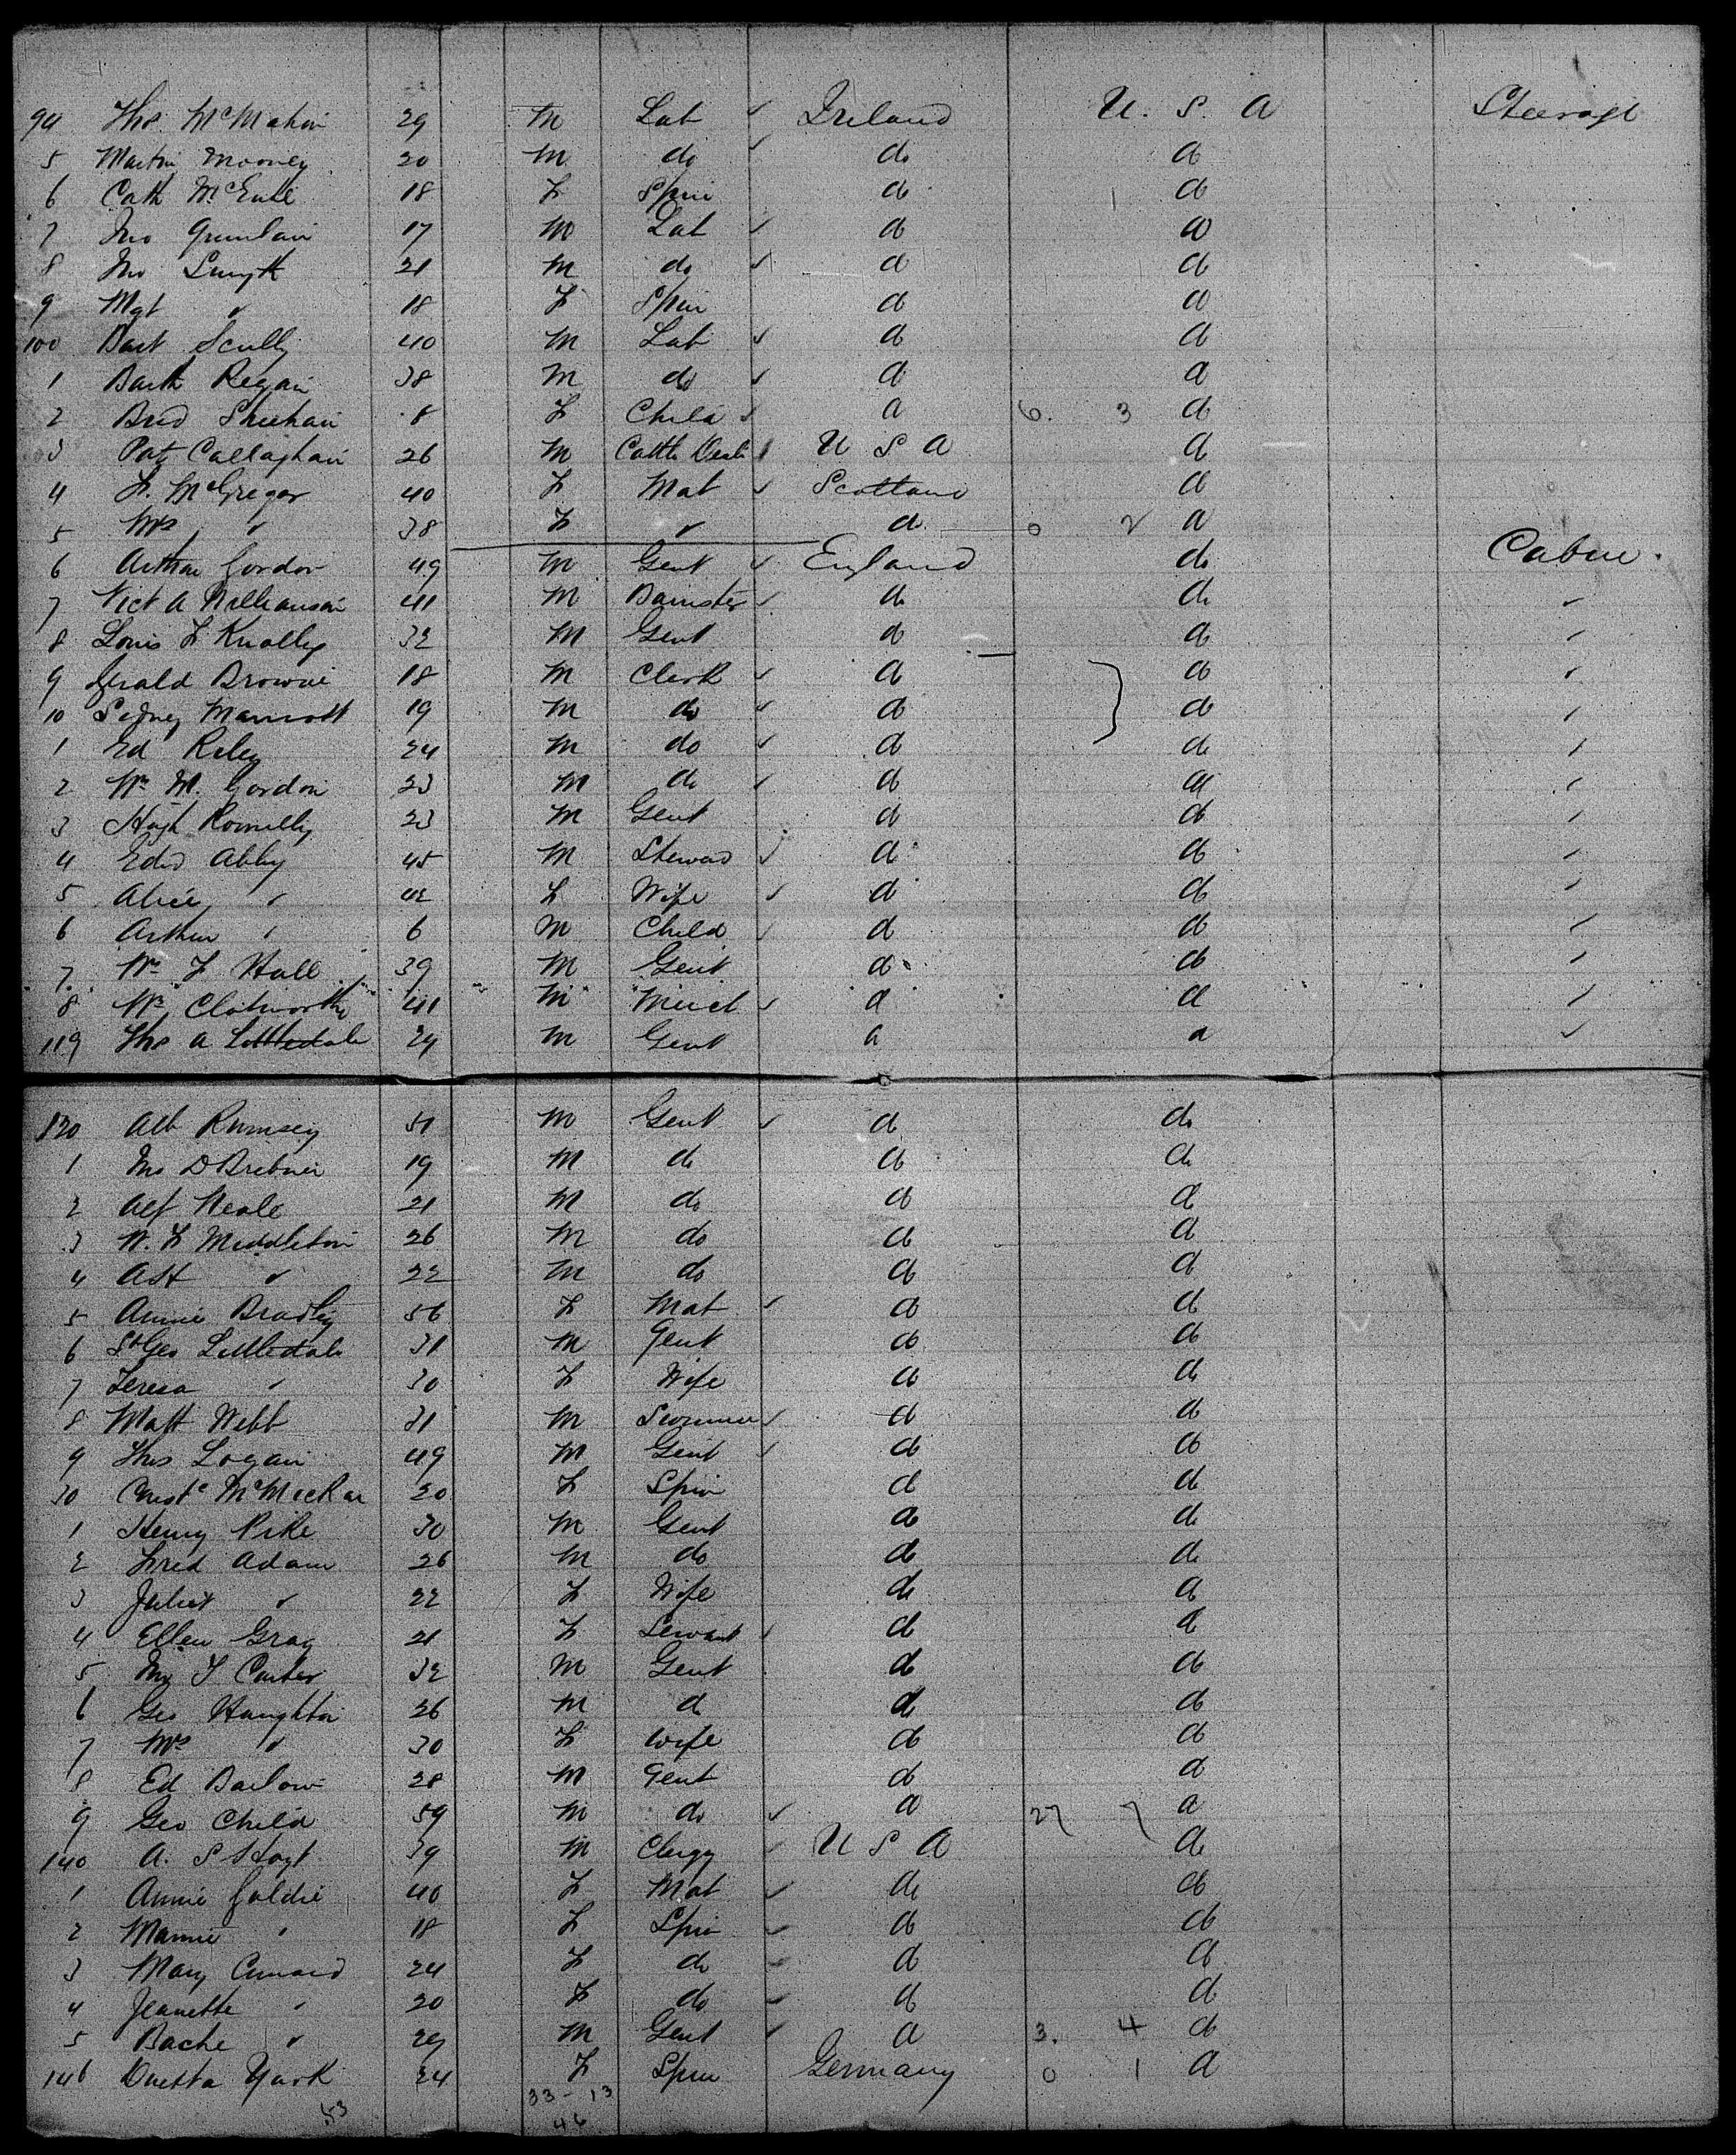 94 Thos McMahon 29 M Lab Ireland U. S. A Steerage
5 Martin Mooney 20 M do do do
6 Cath 18 F Spin do do
7 Jno 17 M Lab do do
8 Jno Smyth 21 M do do do
9 Mgt " 18 F Spin do do
100 Bart Scully 40 M Lab do do
1 Barth Regan 38 M do do do
2 Brid Sheehan 8 F Child do 6. 3 do
3 Pat Callaghan 26 M Cattle Deal U S A do
4 F. McGregor 40 F Mat Scotland do
5 Mrs " 38 F " do 0 2 do
6 Arthur Gordon 49 M Gent England do Cabin.
7 Vict A Williamson 41 M Barrister do do "
8 Louis F Knollys 32 M Gent do do "
9 Gerald Browne 18 M Clerk do do "
10 Sydney Marriott 19 M do do do "
1 Ed Riley 24 M do do do "
2 Wm M. Gordon 23 M do do do "
3 Hugh Romilly 23 M Gent do do "
4 Edwd Abby 45 M Steward do do "
5 Alice " 42 F Wife do do "
6 Arthur " 6 M Child do do "
7 Wm F Hall 39 M Gent do do "
8 Wm Clotworthy 41 M Merch do do "
119 Thos A Littledale 29 M Gent do do "
120 Alb Rumsey 51 M Gent do do
1 Jno D Brebner 19 M do do do
2 Alf Neale 21 M do do do
3 W. F Middleton 26 M do do do
4 Ast " 22 M do do do
5 Annie Bradley 56 F Mat do do
6 St Geo Littledale 31 M Gent do do
7 Teresa " 30 F Wife do do
8 Matt Webb 31 M Swimmer do do
9 Thos Logan 49 M Gent do do
30 20 F Spin do do
1 Henry Pike 30 M Gent do do
2 Fred Adam 26 M do do do
3 Juliet " 22 F Wife do do
4 Ellen Gray 21 F Servant do do
5 Jno T Carter 32 M Gent do do
6 Geo Haughton 26 M do do do
7 Mrs " 30 F Wife do do
8 Ed Barlow 28 M Gent do do
9 Geo Child 59 M do do 27 7 do
140 A. S Hoyt 39 M Clergy U S A do
1 Annie Goldie 40 F Mat do do
2 Mamie " 18 F Spin do do
3 Mary Cunard 24 F do do do
4 Jeanette " 20 F do do do
5 Bache " 29 M Gent do 3. 4 do
146 York 24 F Spin Germany 0 1 do
53 33 - 13
46